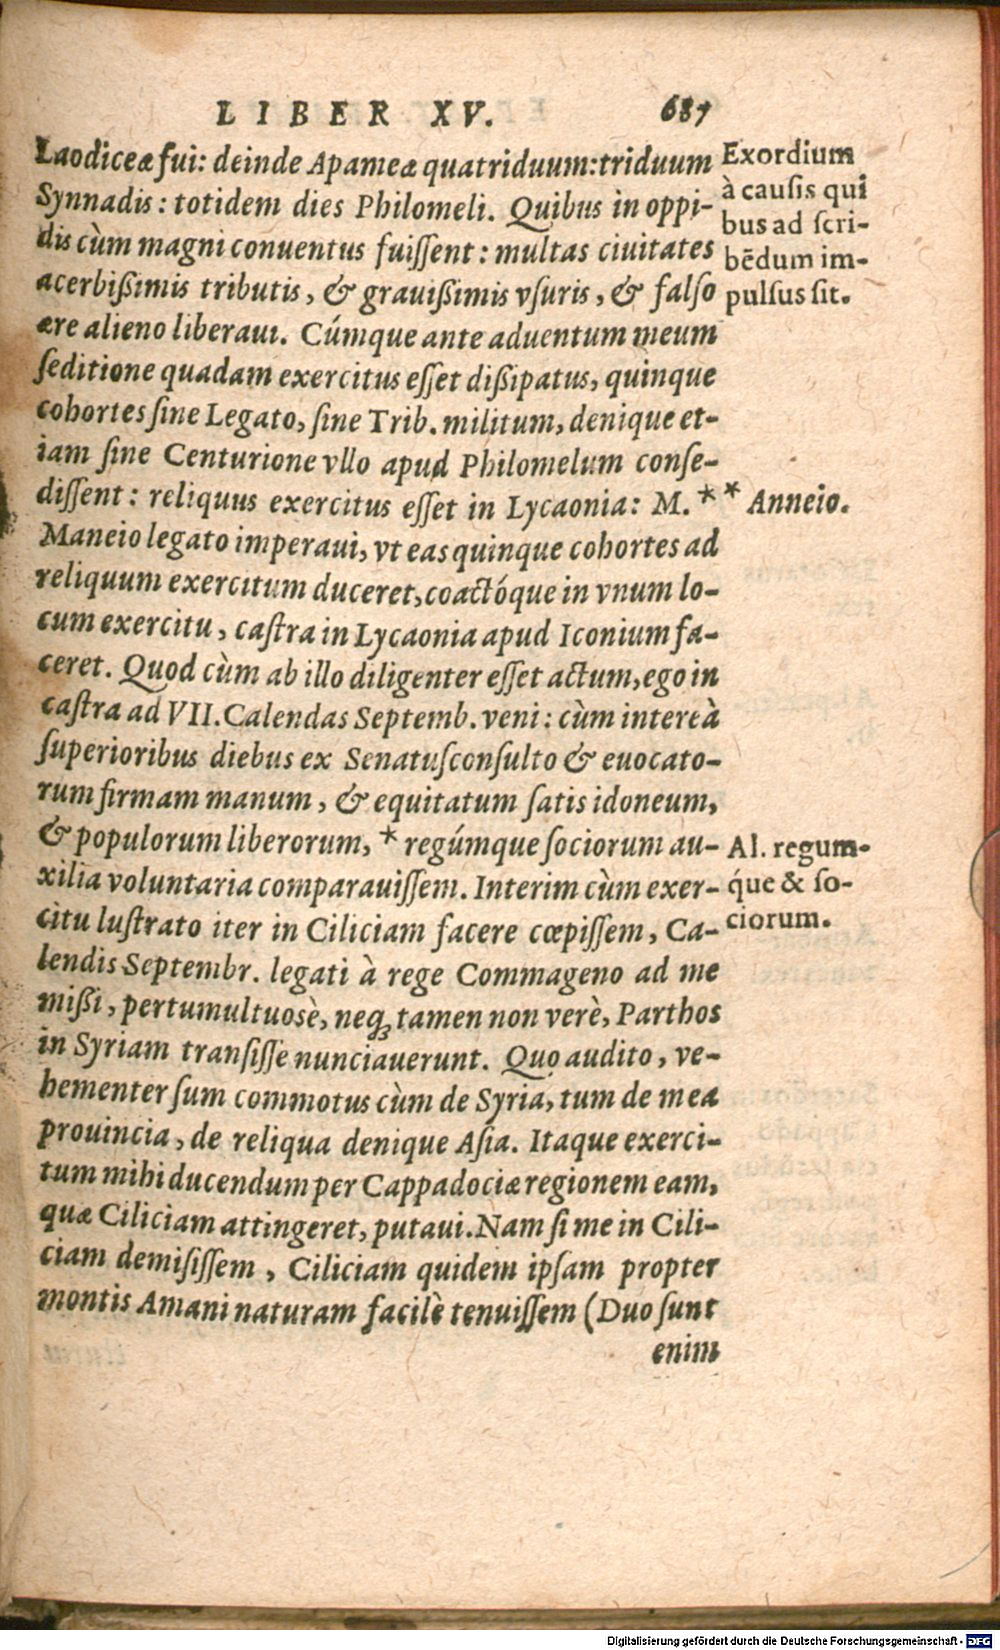 LIBER XV. 687
Laodiceæ fui: deinde Apameæ quatriduum: triduum
Synnadis: totidem dies Philomeli. Quibus in oppi-
dis cùm magni conuentus fuißent: multas ciuitates
acerbißimis tributis, & grauißimis vsuris, & falso
ære alieno liberaui. Cúmque ante aduentum meum
seditione quadam exercitus esset dißipatus, quinque
cohortes sine Legato, sine Trib. militum, denique et-
iam sine Centurione vllo apud Philomelum conse-
dissent: reliquus exercitus esset in Lycaonia: M.*
Maneio legato imperaui, vt eas quinque cohortes ad
reliquum exercitum duceret, coactóque in vnum lo-
cum exercitu, castra in Lycaonia apud Iconium fa-
ceret. Quod cùm ab illo diligenter esset actum, ego in
castra ad VII. Calendas Septemb. veni: cùm intereà
superioribus diebus ex Senatusconsulto & euocato-
rum firmam manum, & equitatum satis idoneum,
& populorum liberorum, * regúmque sociorum au-
xilia voluntaria comparauissem. Interim cùm exer-
citu lustrato iter in Ciliciam facere cœpissem, Ca-
lendis Septembr. legati à rege Commageno ad me
mißi, pertumultuosè, neq; tamen non verè, Parthos
in Syriam transisse nunciauerunt. Quo audito, ve-
hementer sum commotus cùm de Syria, tum de mea
prouincia, de reliqua denique Asia. Itaque exerci-
tum mihi ducendum per Cappadociæ regionem eam,
quæ Ciliciam attingeret, putaui. Nam si me in Cili-
ciam demisissem, Ciliciam quidem ipsam propter
montis Amani naturam facilè tenuissem (Duo sunt
enim
Exordium
à causis qui
bus ad scri-
bēdum im-
pulsus sit.
* Anneio.
Al. regum-
q́ue & so-
ciorum.
Digitalisierung gefördert durch die Deutsche Forschungsgemeinschaft - DFG